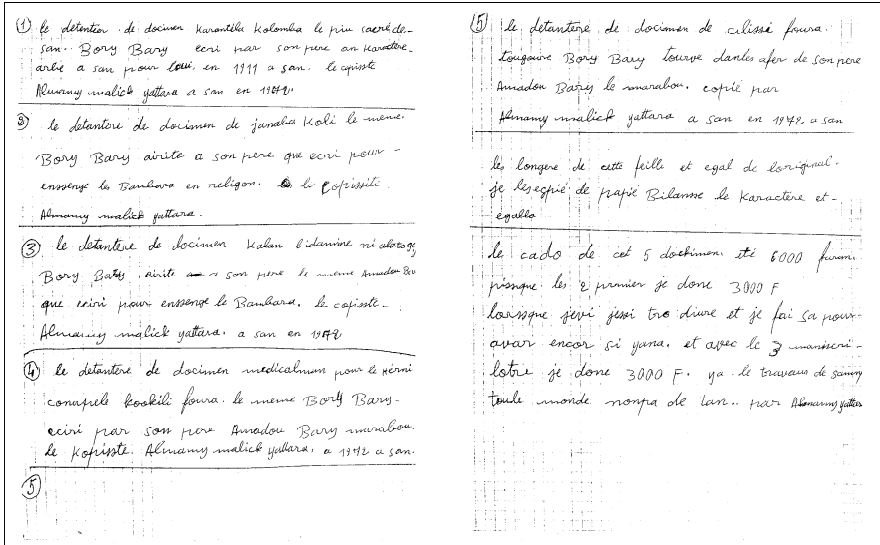 ① le detenteur de docimen Karantela Kolomba le piu sacré de-
san. Bory Bary ecri par son pere an Karactere-
arbe a san pour lui, en 1911 a san. le copisste
Almamy malick yattara a san en 1972.
③ le detantere de docimen de janaba Koli le meme.
Bory Bary airite a son pere que ecri pour -
enssenge les Bambara en religon. le Copissite
Almamy malick yattara.
③ le detantere de docimen Kalan lidamine ni
Bory Bary airite a son pere le meme Amadou
que eciri pour enssenge le Bambara. le copisste-
Almamy malick yattara. a san en 1972
④ le detantere de docimen medicalman pour le
conapele Kookili foura. le meme Bory Bary-
eciri par son pere Amadou Bary marabou.
le Kopisste. Almamy malick yattara, a 1972 a san.
⑤
⑤ le detantere de docimen de cilissi foura.
tougoure Bory Bary tourve danles afer de son pere
Amadou Bary le marabou. copié par
Almamy malick yattara a san en 1972. a san
les longere de cette feille et egal de loriginal.
je les de papié Bilansse le Karactere et -
egallo
le cado de cet 5 dockimen été 6000 furam
pisnque les 2 prmier je done 3000 F
lorssque jevi jessi tro diure et je fai sa pour-
avar encor si yana. et avec le 3 maniscri-
lotre je done 3000 F. ya le travaus de
toule monde nonpa de lan.. par Almamy yattara